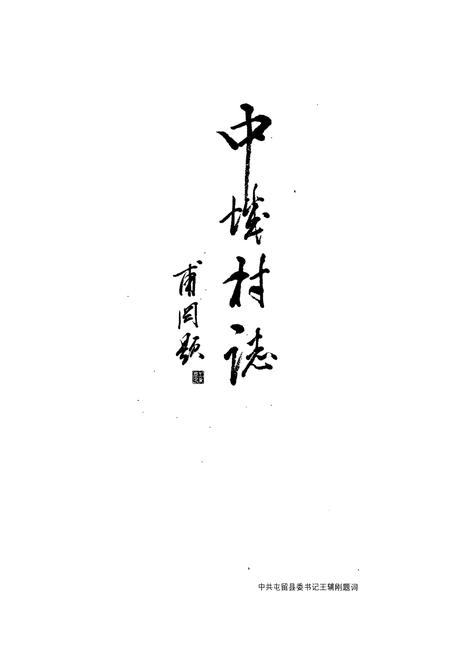 中村誌
甫岡题
中共屯留县委书记王辅刚题词